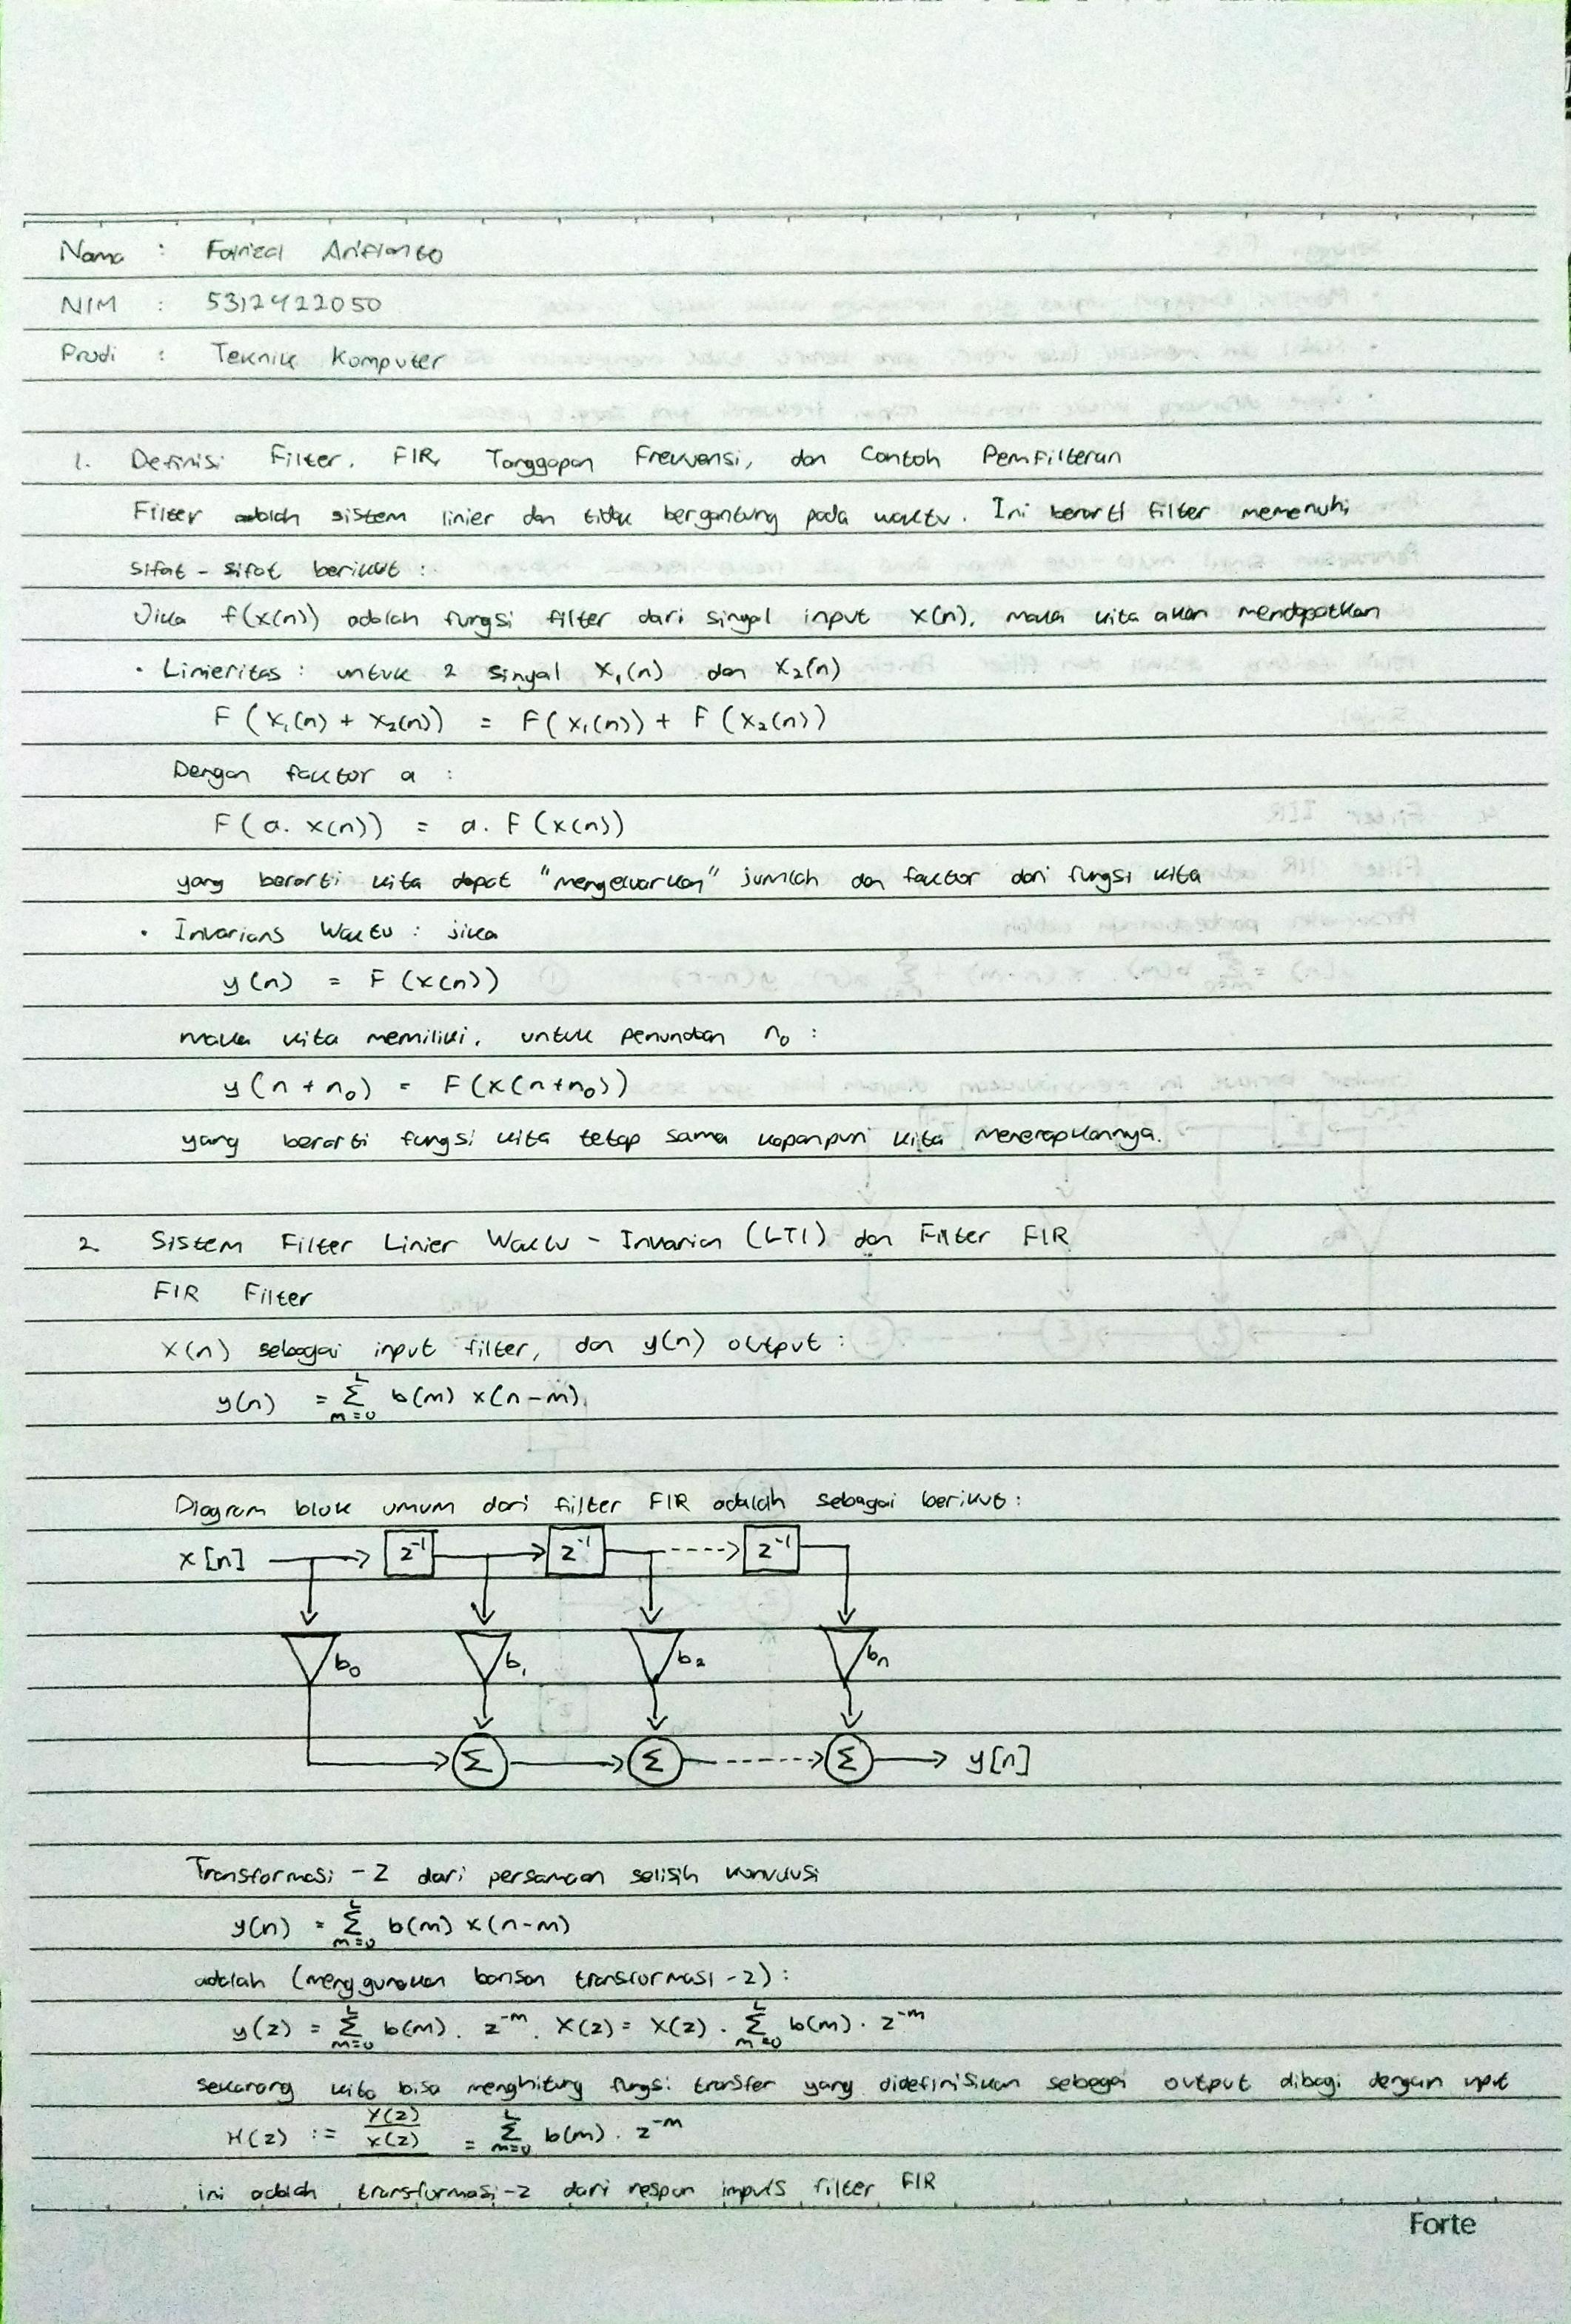 Nama : Fahrizal Arifianto
NIM : 5312422050
Prodi : Teknik Komputer
1. Definisi Filter, FIR, Tanggapan Frekuensi, dan Contoh Pemfilteran
Filter adalah sistem linier dan tidak bergantung pada waktu. Ini berarti filter memenuhi
sifat - sifat berikut :
Jika f(x(n)) adalah fungsi filter dari sinyal input x(n), maka kita akan mendapatkan
• Linieritas : untuk 2 sinyal x₁(n) dan x₂(n)
F (x₁(n) + x₂(n)) = F(x₁(n)) + F (x₂(n))
Dengan faktor a :
F(a. x(n)) = a. F (x(n))
yang berarti kita dapat "mengeluarkan" jumlah dan faktor dari fungsi kita
• Invarians Waktu : jika
y(n) = F (x(n))
maka kita memiliki, untuk penundaan n₀ :
y(n + n₀) = F(x(n+n₀))
yang berarti fungsi kita tetap sama kapanpun kita menerapkannya.
2. Sistem Filter Linier Waktu - Invarian (LTI) dan Filter FIR
FIR Filter
x(n) sebagai input filter, dan y(n) output :
y(n) = Σ_{m=0}^{L} b(m) x(n-m)
Diagram blok umum dari filter FIR adalah sebagai berikut :
x[n] z⁻¹ z⁻¹ z⁻¹
b₀ b₁ b₂ bₙ
Σ Σ Σ y[n]
Transformasi -Z dari persamaan selisih konvolusi
y(n) = Σ_{m=0}^{L} b(m) x(n-m)
adalah (menggunakan barisan transformasi -z) :
y(z) = Σ_{m=0}^{L} b(m). z⁻ᵐ. X(z) = X(z) . Σ_{m=0}^{L} b(m). z⁻ᵐ
sekarang kita bisa menghitung fungsi transfer yang didefinisikan sebagai output dibagi dengan input
H(z) := Y(z)/X(z) = Σ_{m=0}^{L} b(m). z⁻ᵐ
ini adalah transformasi-z dari respon impuls filter FIR
Forte